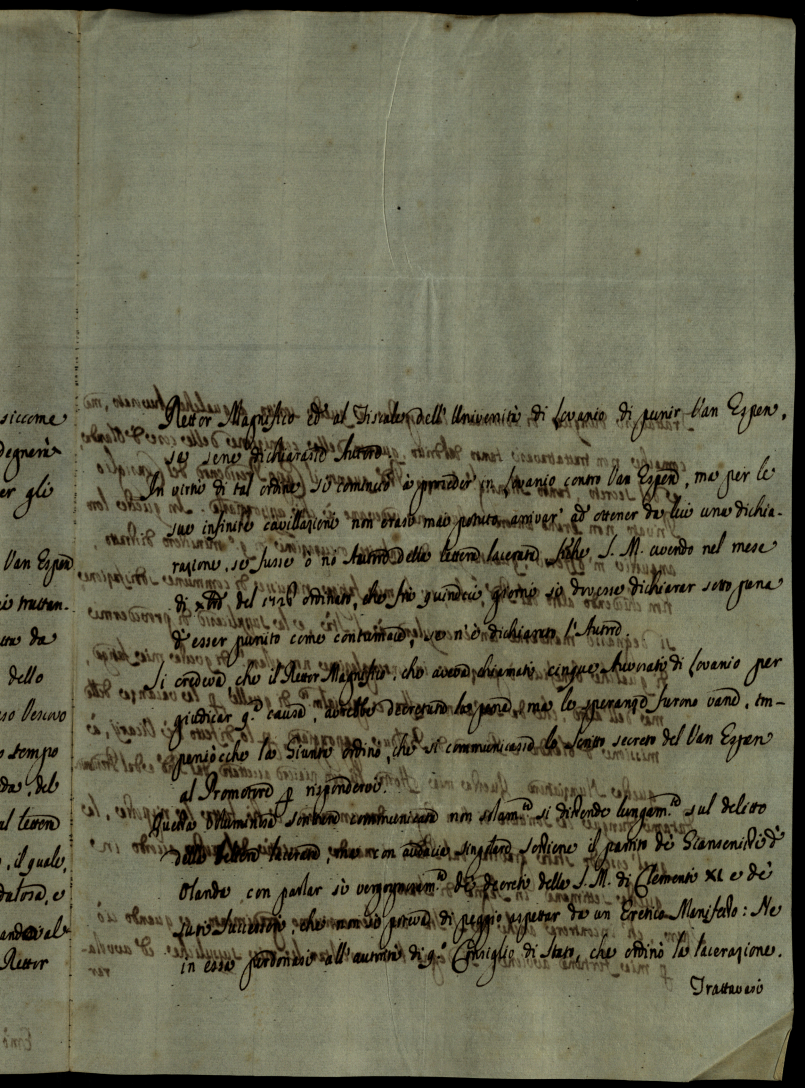 siccome
degnerà
er gli
Van Espen
ei trattan-
tta da
dello
eso Vescovo
o tempo
da, del
al lettera
, il quale,
datosa, e
ando al
Rettor
Rettor Magnifico ed' al Fiscale dell' Università di Lovanio di punir Van Espen,
se sene dichiarasse Autore.
In virtù di tal ordine si cominciò à proceder in Lovanio contro Van Espen, ma per le
sue infinite cavillazioni non erasi mai potuto arrivar' ad ottener da lui una dichia-
razione, se fusse ò nò Autore della lettera lacerata. S. M. avendo nel mese
di del 1726 ordinato, che frà quindeci giorni si dovesse dichiarar sotto pena
d' esser punito come contumace, se n' è dichiarato l' Autore.
Si credeva che il Rettor Magnifico, che aveva chiamati cinque Avvocati di Lovanio per
giudicar q.ª causa, avrebbe decretata la pena, ma le speranze furono vane, im-
perciòcche la Giunta ordinò, che si communicasse lo scritto secreto del Van Espen
al Promotore p rispondervi.
Questa scrittura communicata non solam.te si distende lungam.te sul delitto
della lettera lacerata, ma con audacia singolare sostiene il partito de' Giansenisti d'
Olanda, con parlar sì vergognosam.te de' decreti della S. M. di Clemente XI e de'
suoi Successori, che non si poteva di peggio aspettar da un Eretico Manifesto: Ne
in essa perdonasi all' autorità di q.º Consiglio di Stato, che ordinò la lacerazione.
Trattavasi